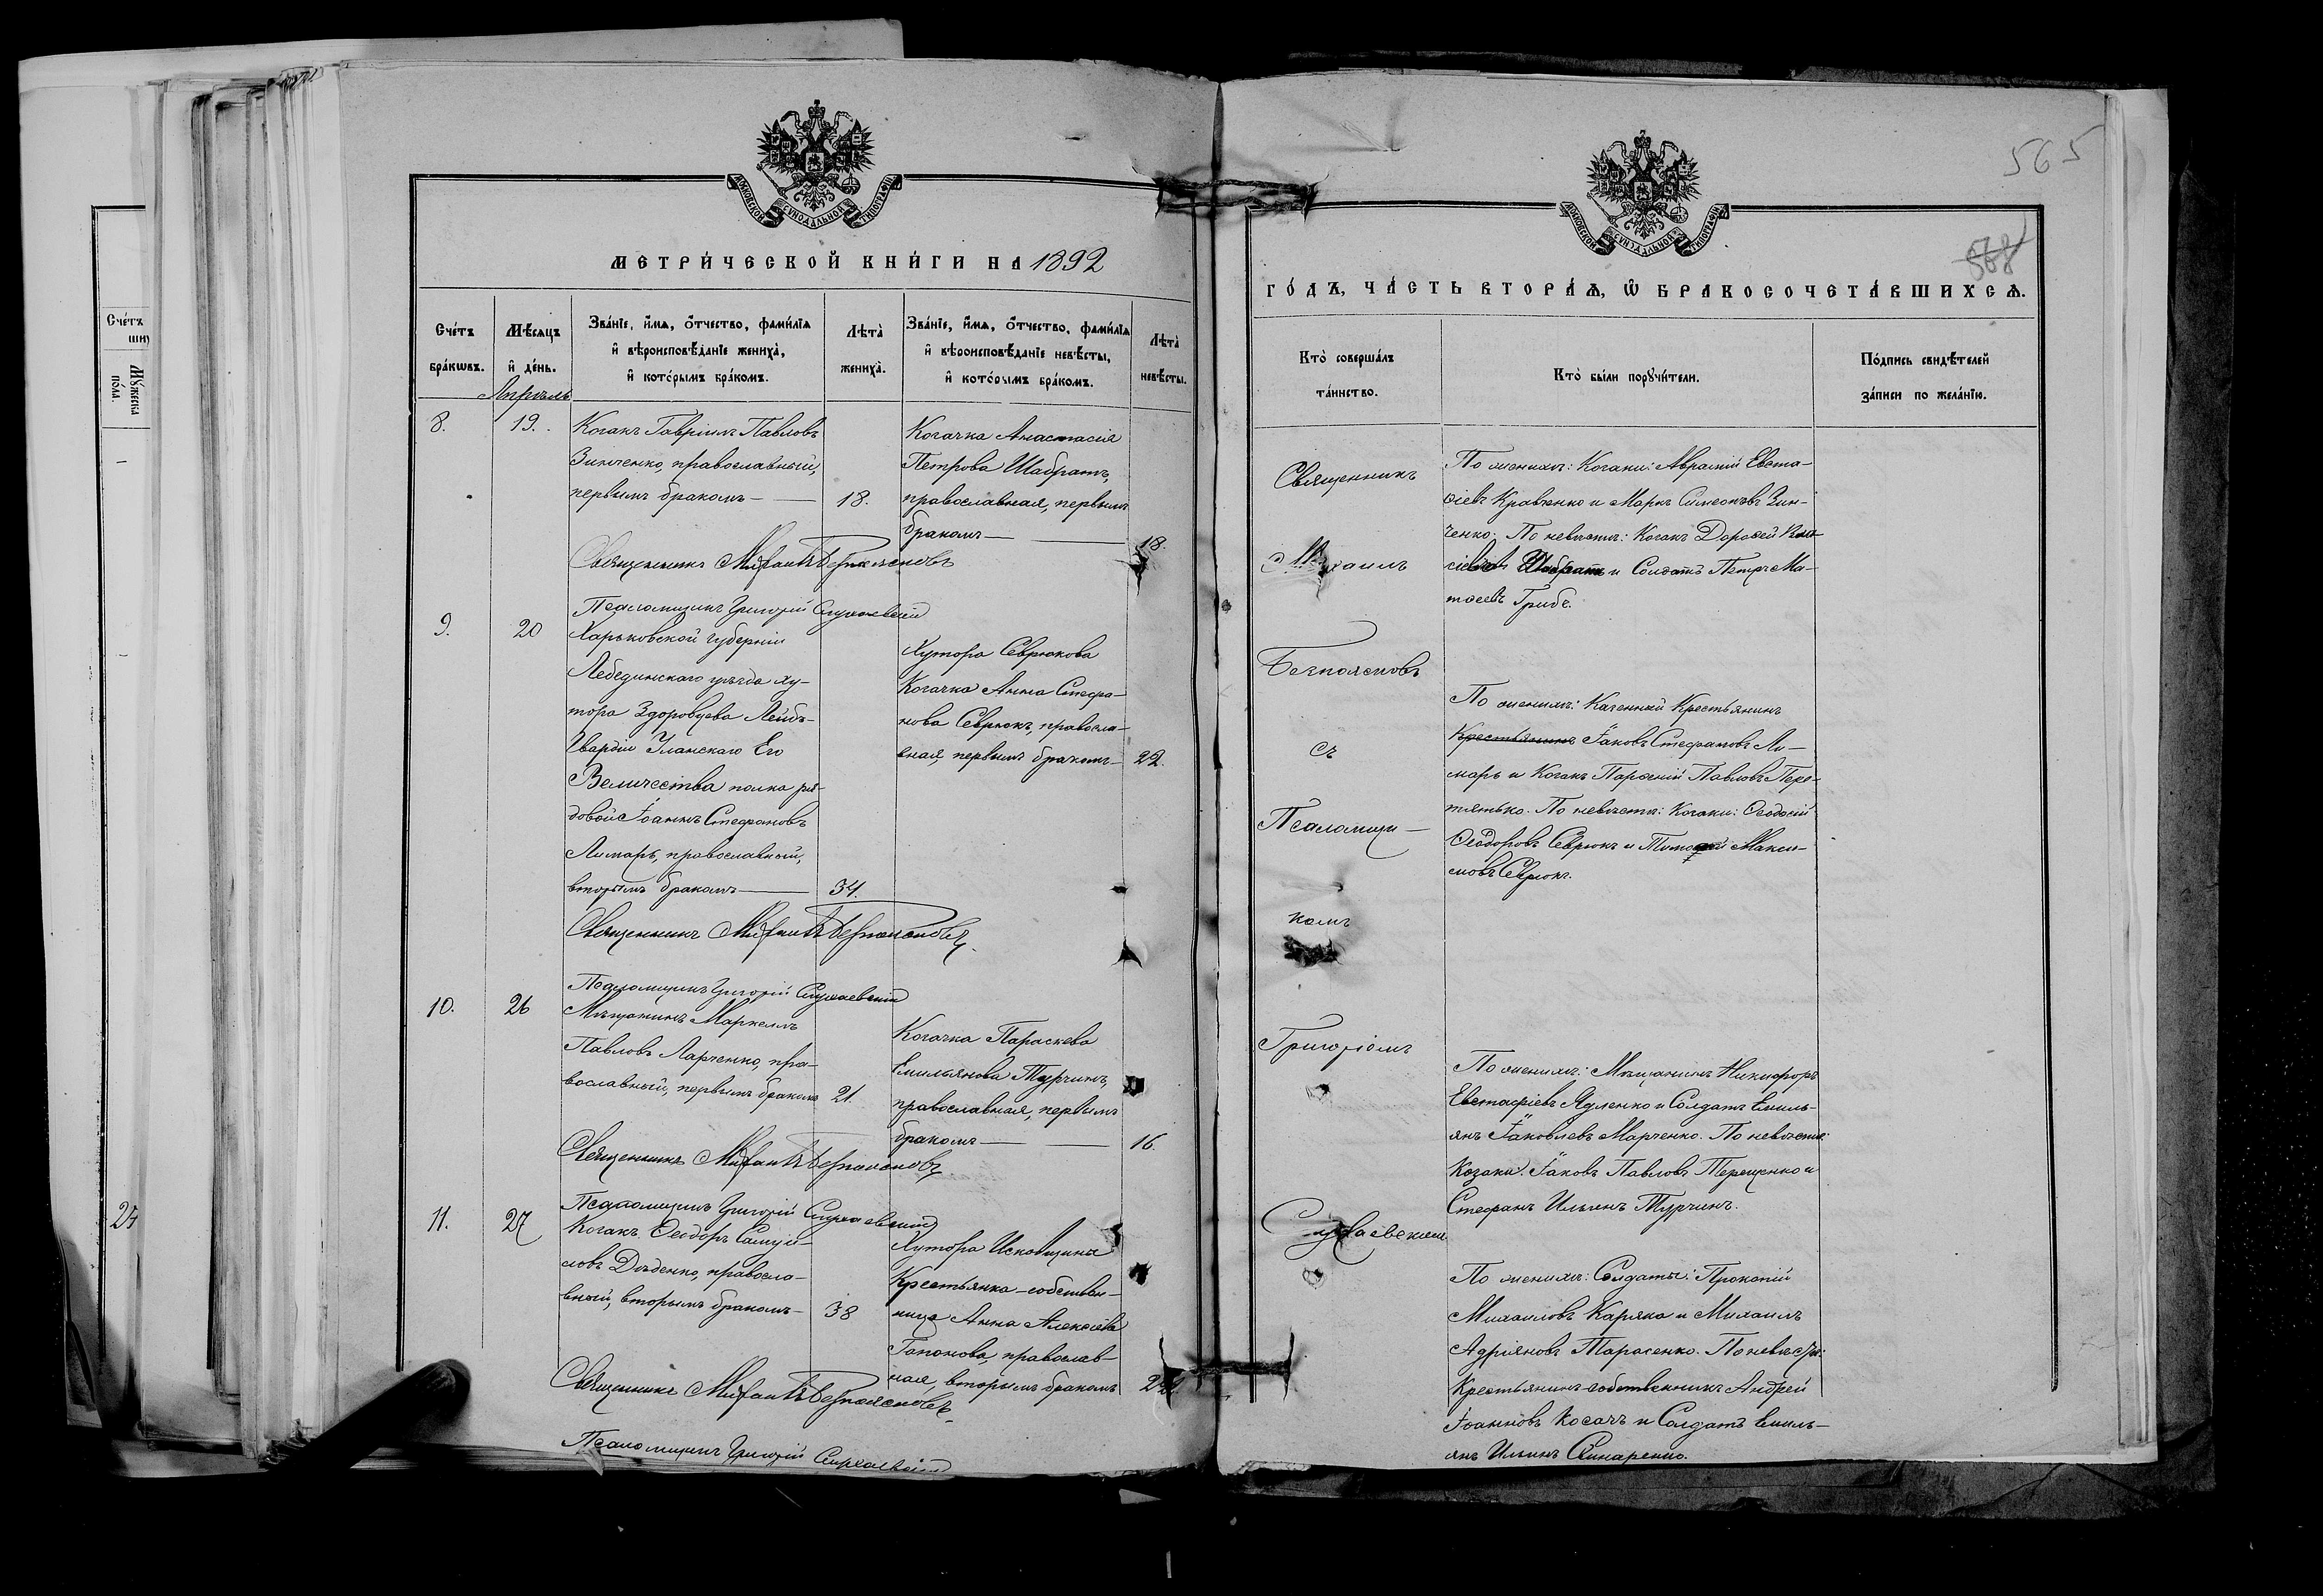 Счетъ
Мужеска
пола.
27
МОСКОВСКОЙ СУНОДАЛЬНОЙ ТИПОГРАФІИ
МЕТРИ́ЧЕСКОЙ КНИ́ГИ НА 1892
Сче́тъ бра́кѡвъ.
Мѣ́сяцъ и҆ де́нь.
Зва́нїе, и҆́мѧ, ѻ҆́тчество, фами́лїѧ и҆ вѣроисповѣ́данїе жениха̀, и҆ кото́рымъ бра́комъ.
Лѣта̀ жениха̀.
Зва́нїе, и҆́мѧ, ѻ҆́тчество, фами́лїѧ и҆ вѣроисповѣ́данїе невѣ́сты, и҆ кото́рымъ бра́комъ.
Лѣта̀ невѣ́сты.
Апрѣль
8.
19.
Козакъ Гавріилъ Павловъ
Зинченко, православный,
первымъ бракомъ —
18.
Козачка Анастасія
Петрова Шабратъ,
православная, первымъ
бракомъ —
18.
Священникъ Михаилъ Безпоясновъ
Псаломщикъ Григорій
9.
20
Харьковской губерніи
Лебединскаго уѣзда ху-
тора Здоровцева Лейбъ-
Гвардіи Уланскаго Его
Величества полка ря-
довой Іоаннъ Стефановъ
Лимарь, православный,
вторымъ бракомъ —
34.
Хутора Севрюкова
Козачка Анна Стефа-
нова Севрюкъ, правосла-
вная, первымъ бракомъ —
22.
Священникъ Михаилъ Безпоясновъ.
Псаломщикъ Григорій
10.
26
Мѣщанинъ Маркеллъ
Павловъ Ларченко, пра-
вославный, первымъ бракомъ
21.
Козачка Параскева
Емильянова Турчинъ,
православная, первымъ
бракомъ —
16.
Священникъ Михаилъ Безпоясновъ
Псаломщикъ Григорій
11.
27
Козакъ Ѳеодоръ Самуи-
ловъ Дѣденко, правосла-
вный, вторымъ бракомъ —
38
Хутора
Крестьянка-собствен-
ница Анна Алексіева
Гапонова, православ-
ная, вторымъ бракомъ
Священникъ Михаилъ Безпоясновъ
Псаломщикъ Григорій
565
568
МОСКОВСКОЙ СУНОДАЛЬНОЙ ТИПОГРАФІИ
ГО́ДЪ, ЧА́СТЬ ВТОРА́Ѧ, Ѡ҆ БРАКОСОЧЕТА́ВШИХСѦ.
Кто̀ соверша́лъ та́инство.
Кто̀ бы́ли порꙋчи́тели.
По́дпись свидѣ́телей за́писи по жела́нїю.
Священникъ
Михаилъ
Безпоясновъ
съ
Псаломщи-
комъ
Григоріемъ
По женихѣ: Козаки: Авраміи Евста-
Кравченко и Маркъ Симеоновъ Зин-
ченко. По невѣстѣ: Козакъ Дороѳей
Шабратъ и Солдатъ Петръ Ма-
тѳеевъ Грибъ.
По женихѣ: Казенный Крестьянинъ
Крестьянинъ Іаковъ Стефановъ Ли-
марь и Козакъ Парѳеній Павловъ Пере-
тятько. По невѣстѣ: Козаки: Ѳеодосій
Ѳеодоровъ Севрюкъ и Тимоѳей Макси-
мовъ Севрюкъ.
По женихѣ: Мѣщанинъ Никифоръ
Евстафіевъ Яценко и Солдатъ Емиль-
янъ Іаковлевъ Марченко. По невѣстѣ:
Козаки: Іаковъ Павловъ Терещенко и
Стефанъ Ильинъ Турчинъ.
По женихѣ: Солдаты: Прокопій
Михаиловъ Каряка и Михаилъ
Адріяновъ Тарасенко. По невѣстѣ:
Крестьянинъ-собственникъ Андрей
Іоанновъ Косачъ и Солдатъ Емиль-
янъ Ильинъ Свинаренко.